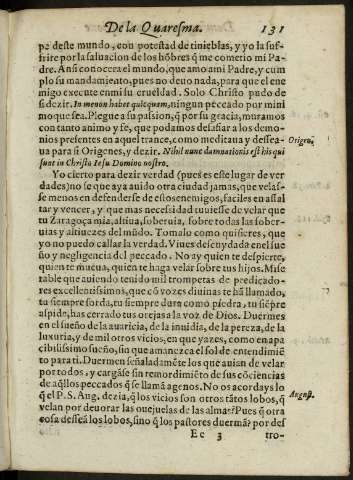 De la Quaresma. 131
pe deste mundo, con potestad de tinieblas, y yo la suf-
frire por la saluacion de los hõbres q̃ me cometio mi Pa-
dre. Ansi conocera el mundo, que amo a mi Padre, y cum
plo su mandamiento, pues no deuo nada, para que el ene
migo execute en mi su crueldad. Solo Christo pudo de
zir. In me non habet quicquam, ningun peccado por mini
mo que sea. Plegue a su passion, q̃ por su gracia, muramos
con tanto animo y fe, que podamos desafiar a los demo-
nios presentes en aquel trance, como meditaua y dessea-
ua para si Origenes, y dezir. Nihil nunc damnationis est his qui
sunt in Christo Iesu Domino nostro.
Origen.
Yo cierto para dezir verdad (pues es este lugar de ver
dades) no se que aya auido otra ciudad jamas, que velas-
se menos en defenderse de estos enemigos, faciles en assal
tar y vencer, y que mas necessidad tuuiesse de velar que
tu Zaragoça mia, altiua, soberuia, sobre todas las sober-
uias y altiuezes del mũdo. Tomalo como quisieres, que
yo no puedo callar la verdad. Viues descuydada en el sue
ño y negligencia del peccado. No ay quien te despierte,
quien te mueua, quien te haga velar sobre tus hijos. Mise
rable que auiendo tenido mil trompetas de predicado-
res excellentissimos, que cõ vozes diuinas te hã llamado,
tu siempre sorda, tu siempre dura como piedra, tu siẽpre
aspide, has cerrado tus orejas a la voz de Dios. Duermes
en el sueño de la auaricia, de la inuidia, de la pereza, de la
luxuria, y de mil otros vicios, en que yazes, como en apa
cibilissimo sueño, sin que amanezca el sol de entendimiẽ
to para ti. Duermen señaladamẽte los que auian de velar
por todos, y cargãse sin remordimiẽto de sus cõciencias
de aq̃llos peccados q̃ se llamã agenos. No os acordays lo
q̃ el P. S. Aug. dezia, q̃ los vicios son otros tãtos lobos, q̃
August.
velan por deuorar las ouejuelas de las almas? Pues q̃ otra
cosa desseã los lobos, sino q̃ los pastores duermã? por des
Ee 3 tro-